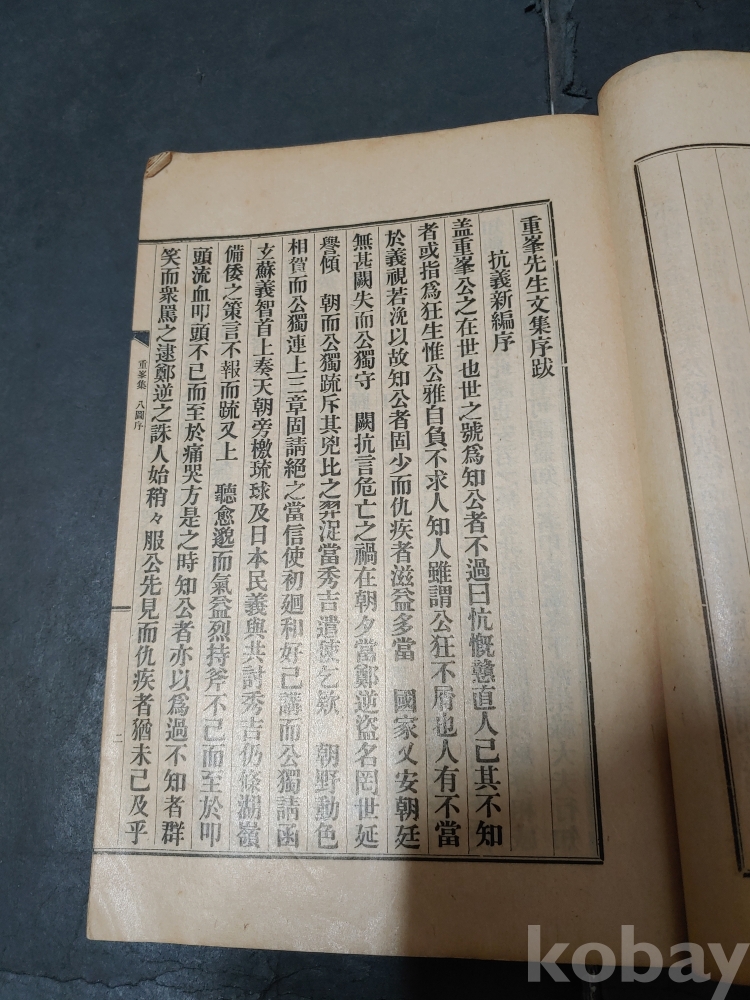 重峯先生文集序跋
抗義新編序
盖重峯公之在世也世之號爲知公者不過曰忼慨戇直人已其不知
者或指爲狂生惟公雅自負不求人知人雖謂公狂不屑也人有不當
於義視若浼以故知公者固少而仇疾者滋益多當 國家乂安朝廷
無甚闕失而公獨守 闕抗言危亡之禍在朝夕當鄭逆盜名罔世延
譽傾 朝而公獨䟽斥其兇比之羿浞當秀吉遣使乞欵 朝野動色
相賀而公獨連上三章固請絕之當信使初廻和好已講而公獨請函
玄蘇義智首上奏天朝旁檄琉球及日本民義與共討秀吉仍條湖嶺
備倭之策言不報而䟽又上 聽愈邈而氣益烈持斧不已而至於叩
頭流血叩頭不已而至於痛哭方是之時知公者亦以爲過不知者群
笑而衆罵之逮鄭逆之誅人始稍々服公先見而仇疾者猶未已及乎
重峯集 八圖序
二
kobay